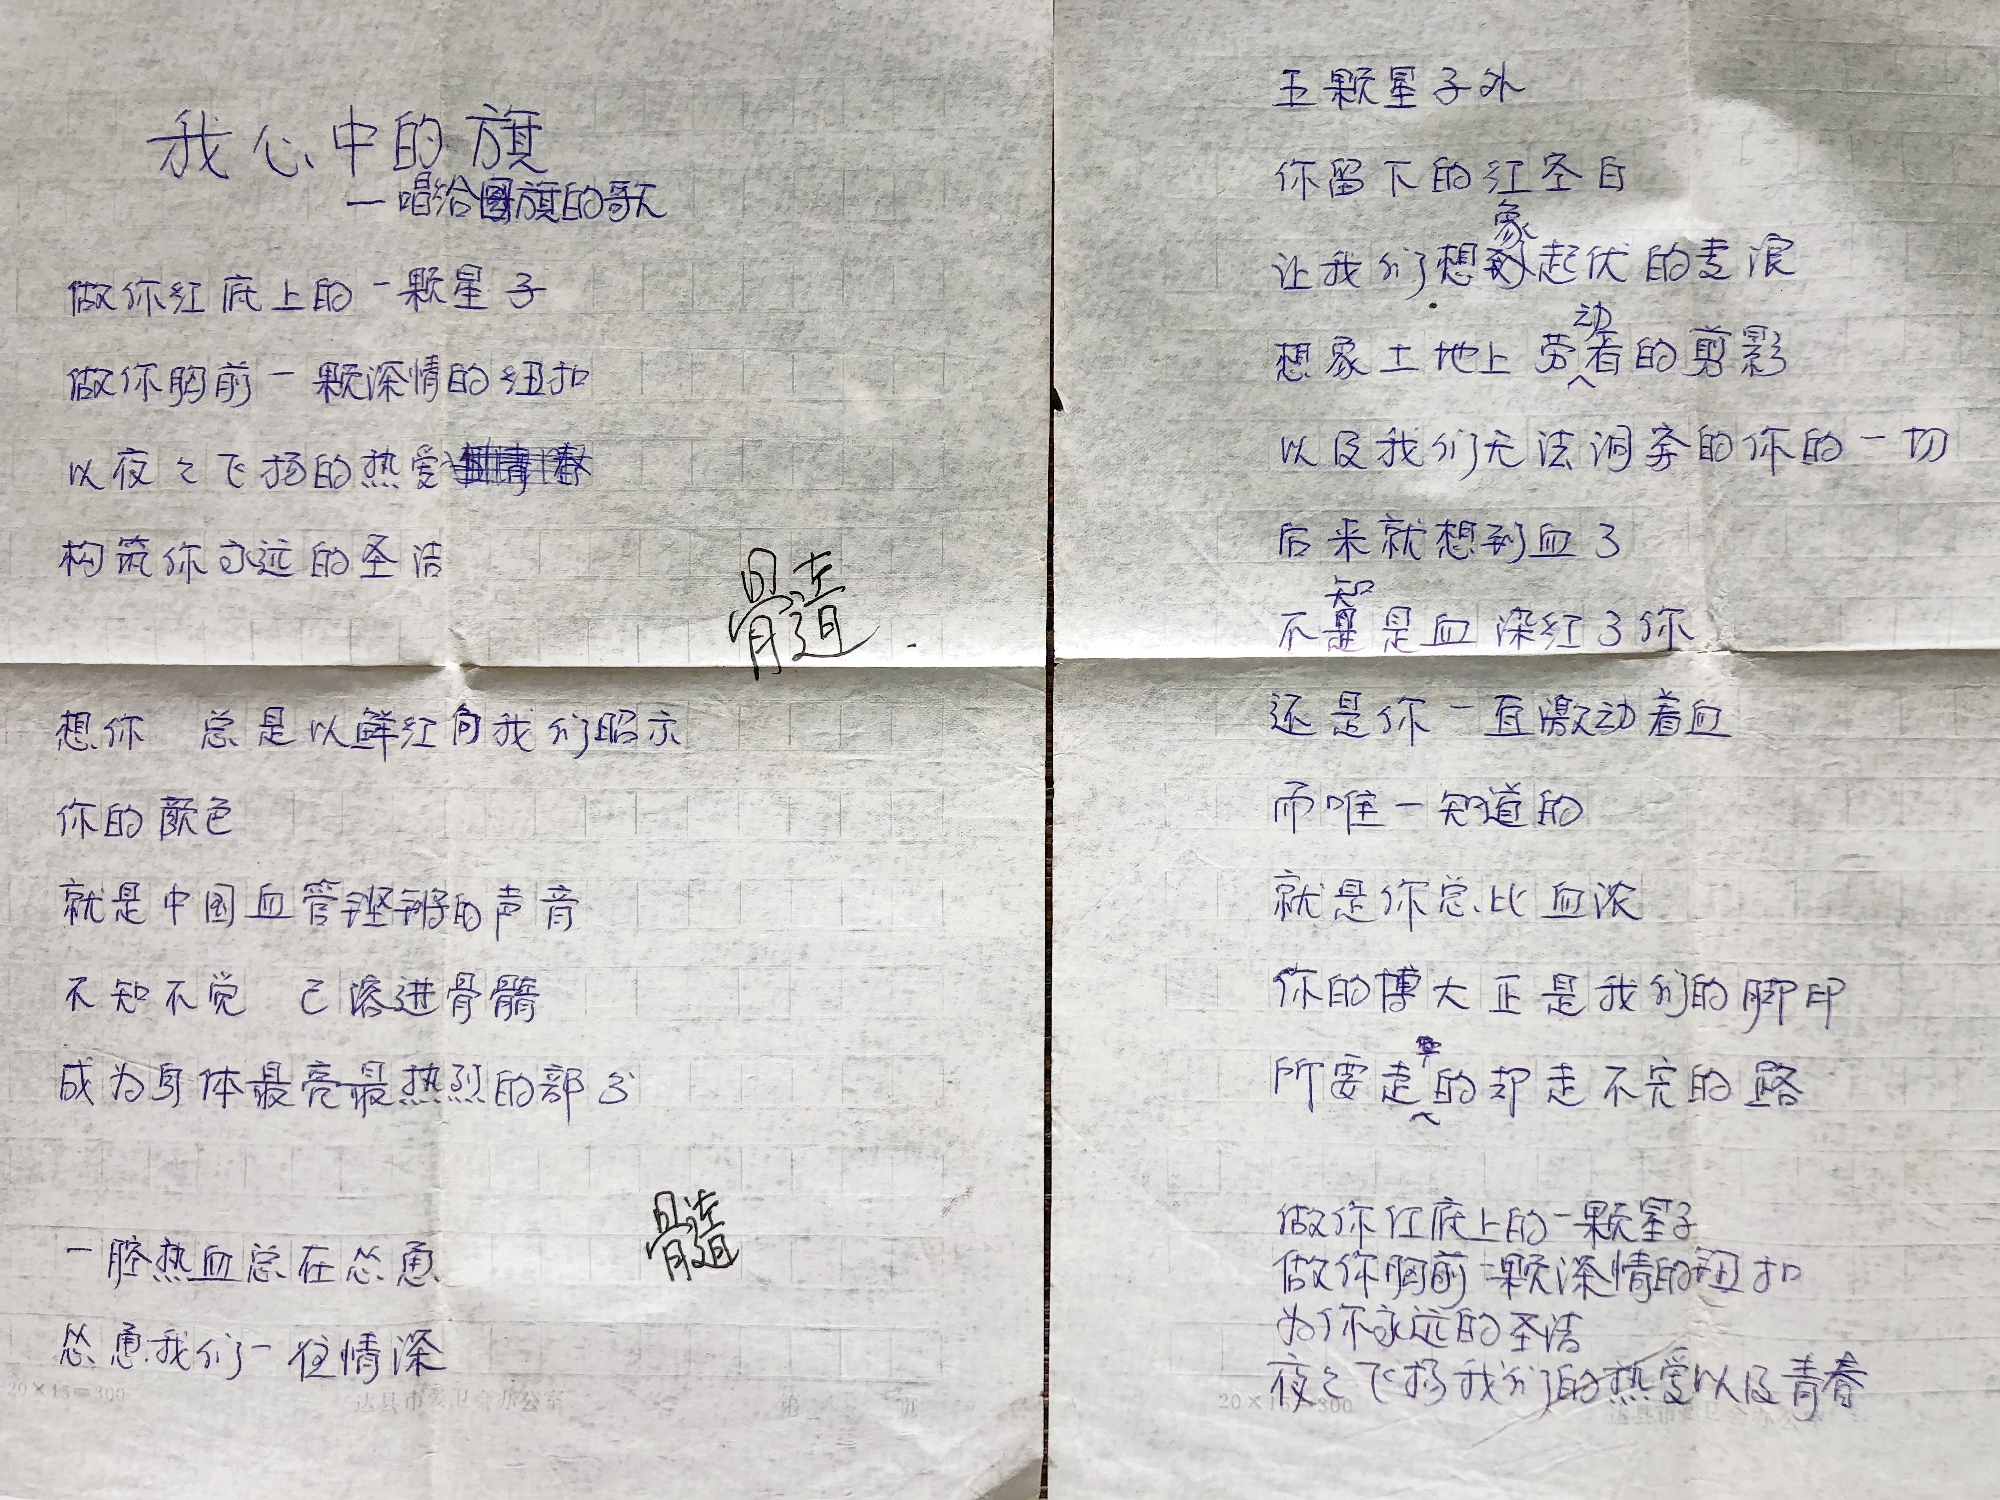 我心中的旗
—唱给国旗的歌
做你红底上的一颗星子
做你胸前一颗深情的纽扣
以夜夜飞扬的热爱
构筑你永远的圣洁
髓
想你 总是以鲜红向我们昭示
你的颜色
就是中国血管铿锵的声音
不知不觉 已溶进骨髓
成为身体最亮最热烈的部分
髓
一腔热血总在怂恿
怂恿我们一往情深
20×15=300
达县市爱卫会办公室
第 页
五颗星子外
你留下的红空白
让我们想象起伏的麦浪
想象土地上劳动者的剪影
以及我们无法洞穿的你的一切
后来就想到血了
不知是血染红了你
还是你一直激动着血
而唯一知道的
就是你总比血浓
你的博大正是我们的脚印
所要走的却走不完的路
做你红底上的一颗星子
做你胸前一颗深情的纽扣
为你永远的圣洁
夜夜飞扬我们的热爱以及青春
20×15=300